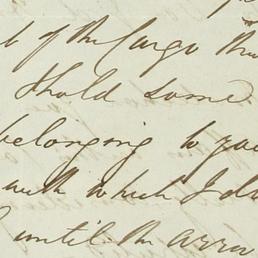 of the Cargo
I hold some
belonging to you
with which I do
until the arriv